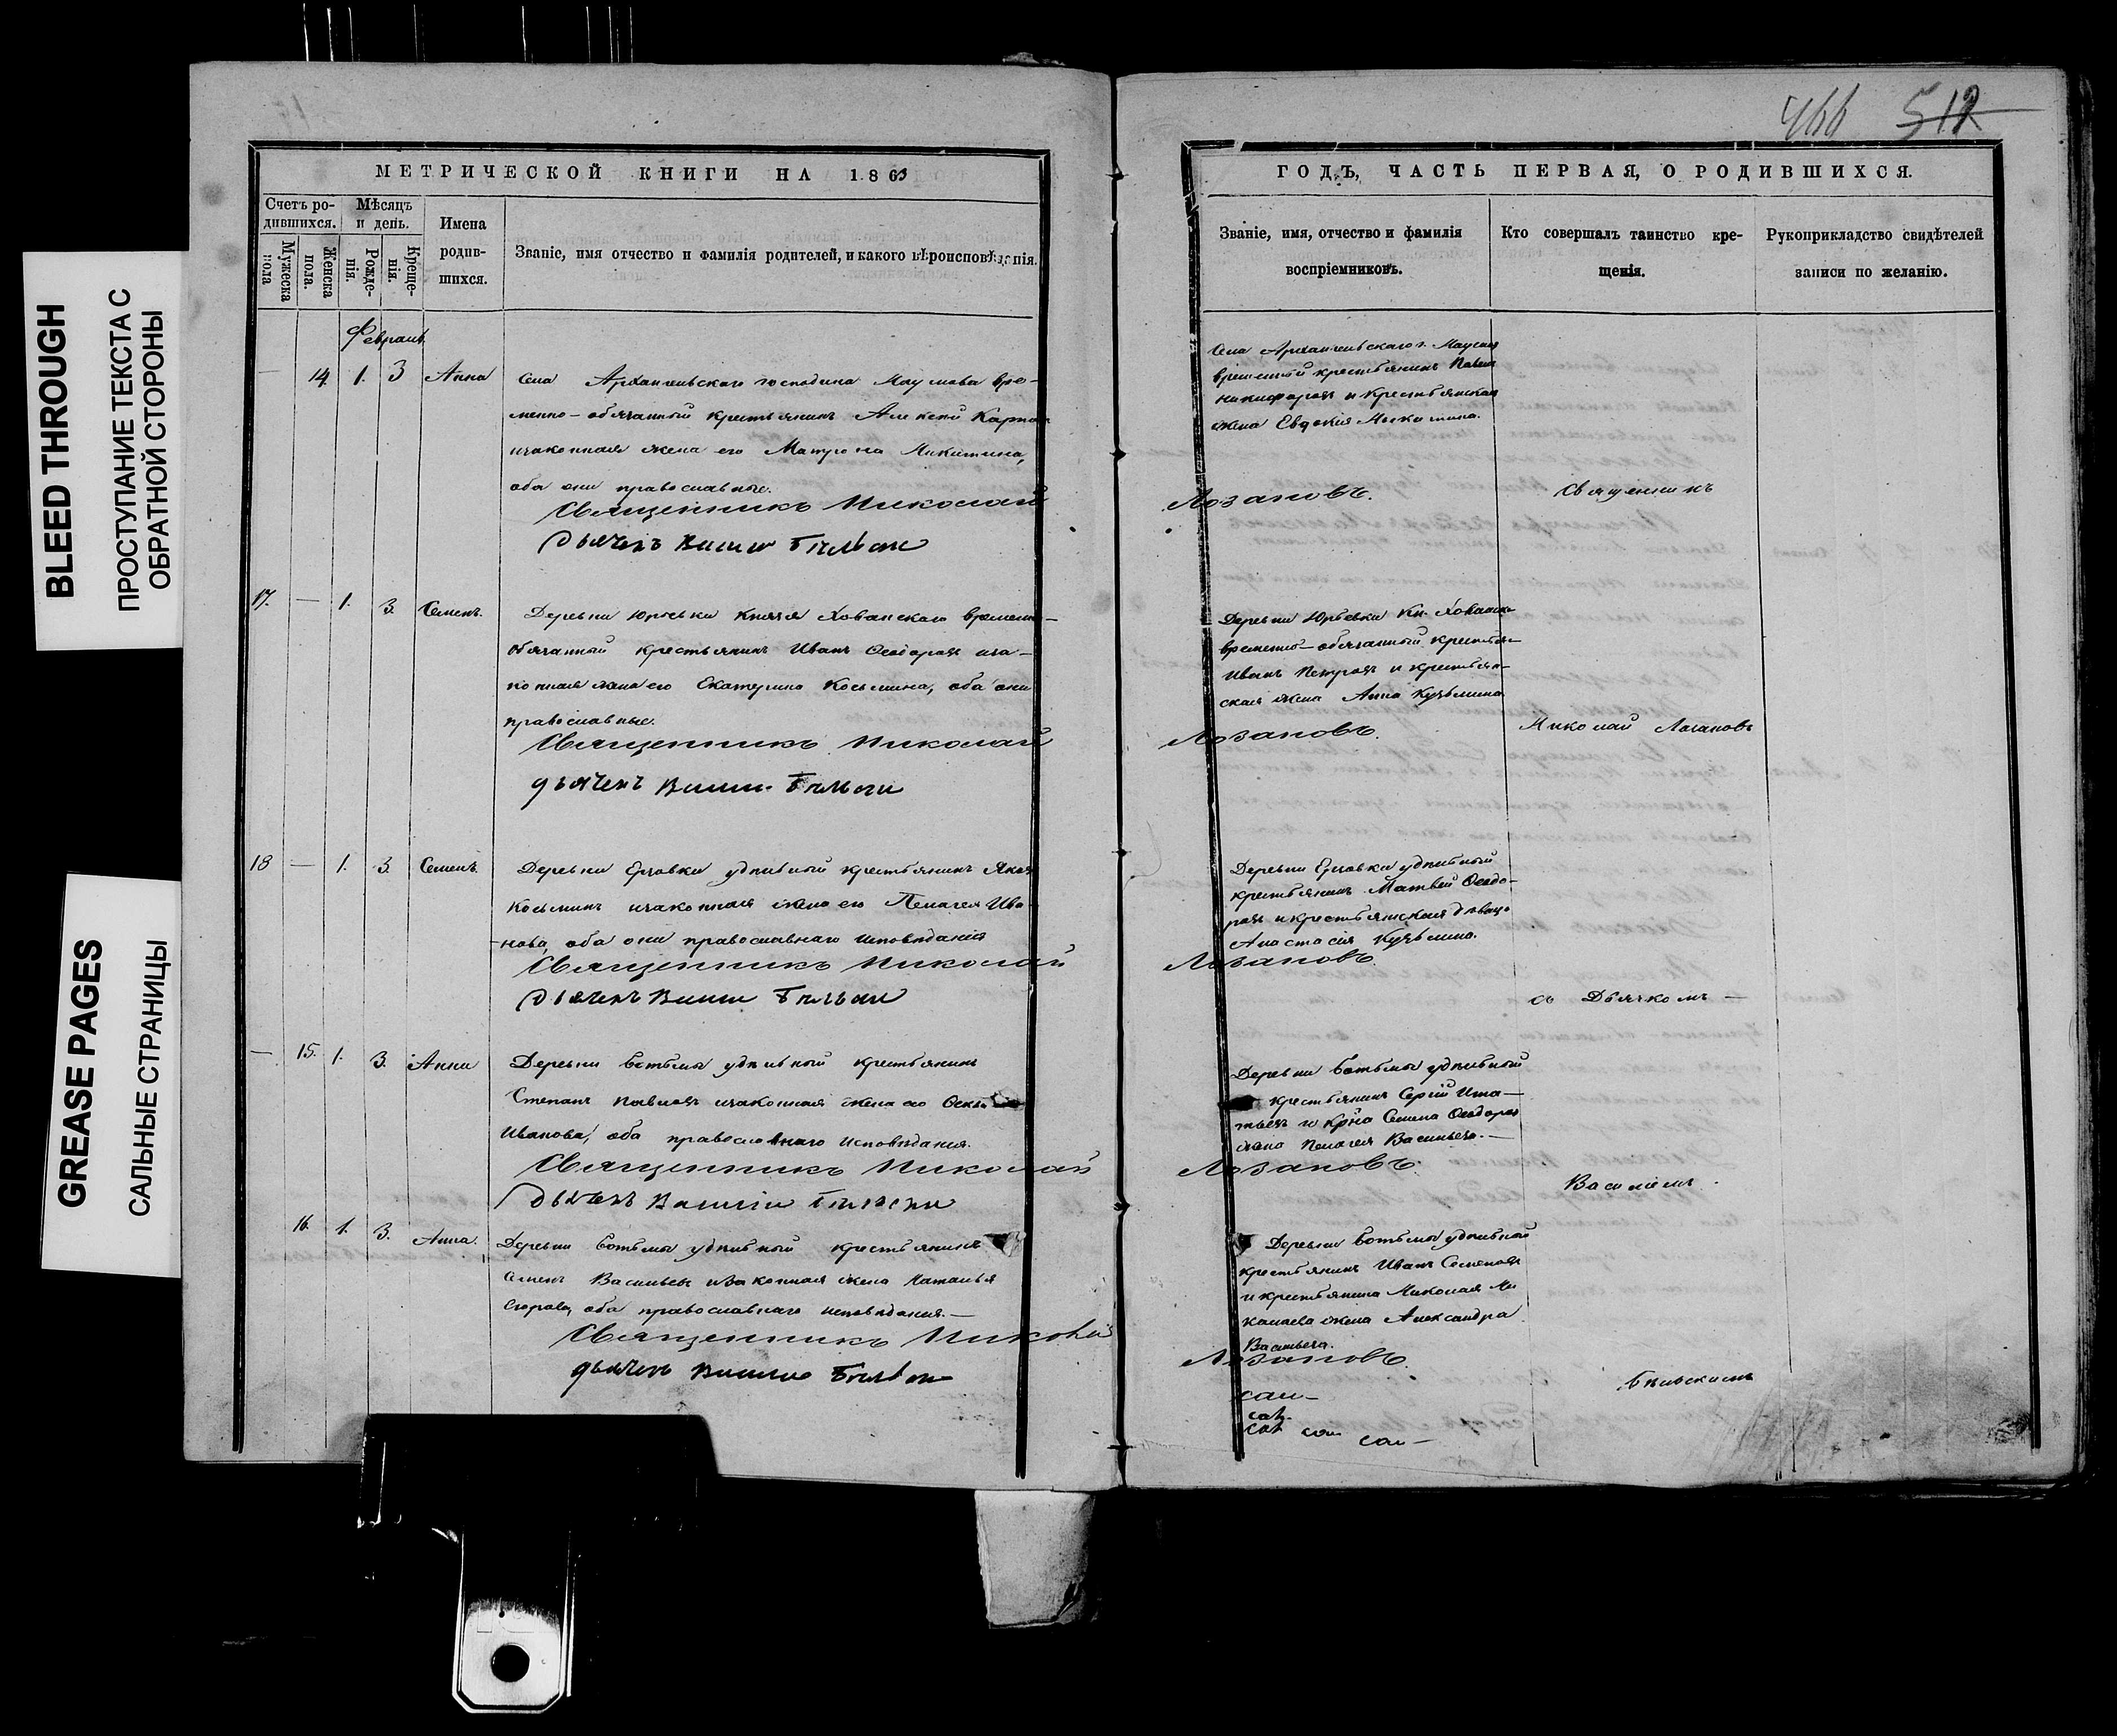 BLEED THROUGH
ПРОСТУПАНИЕ ТЕКСТА С
ОБРАТНОЙ СТОРОНЫ
GREASE PAGES
САЛЬНЫЕ СТРАНИЦЫ
МЕТРИЧЕСКОЙ КНИГИ НА 1863
Счетъ ро-
дившихся.
Мѣсяцъ
и день.
Мужеска
пола
Женска
пола.
Рожде-
нія.
Креще-
нія.
Имена
родив-
шихся.
Званіе, имя отчество и фамилія родителей, и какого вѣроисповѣданія.
Февраль
14 1. 3 Анна
Села Архангельскаго господина Наумова вре-
менно-обязанный крестьянинъ Алексей
изаконная жена его Матрона Никитина,
оба они православные.
Священникъ Николай
дьячекъ
17. — 1. 3. Семенъ.
Деревни Юрьевки Князя Хованскаго временно-
обязанный крестьянинъ Иванъ Ѳеодоровъ иза-
конная жена его Екатерина Косьмина, оба они
православные.
Священникъ Николай
дьячекъ
18 — 1. 3. Семенъ.
Деревни удѣльный крестьянинъ
Косьминъ изаконная жена его Пелагея Ива-
нова, оба они православнаго исповѣданія
Священникъ Николай
дьячекъ
— 15. 1. 3. Анна
Деревни удѣльный крестьянинъ
Степанъ Павловъ изаконная жена его
Иванова, оба православнаго исповѣданія.
Священникъ Николай
дьячекъ Василій
16. 1. 3. Анна.
Деревни удѣльный крестьянинъ
Семенъ Васильевъ изаконная жена Наталья
Егорова, оба православнаго исповѣданія.—
Священникъ Николай
дьячекъ
466 512
ГОДЪ, ЧАСТЬ ПЕРВАЯ, О РОДИВШИХСЯ.
Званіе, имя, отчество и фамилія
воспріемниковъ.
Кто совершалъ таинство кре-
щенія.
Рукоприкладство свидѣтелей
записи по желанію.
Села Архангельскаго г. Наумова
крестьянинъ
и крестьянская
жена Евдокия Никитина.
Лозановъ.
Священникъ
Деревни Юрьевки Кн. Хованско
временно-обязанный крестьян
Иванъ Петровъ и крестьян-
ская жена Анна Кузьмина
Лозановъ.
Николай Лозановъ
Деревни удѣльный
крестьянинъ Матвей Ѳеодо-
ровъ и крестьянская дѣвица
Анастасія Кузьмина.
Лозановъ
съ Дьячкомъ —
Деревни удѣльный
крестьянинъ Сергій Игна-
тьевъ и Семена Ѳеодорова
жена Пелагея Васильева.—
Лозановъ
Василіемъ
Деревни удѣльный
крестьянинъ Иванъ Семеновъ
и крестьянина Николая Ни
колаева жена Александра
Васильева.
Лозановъ.